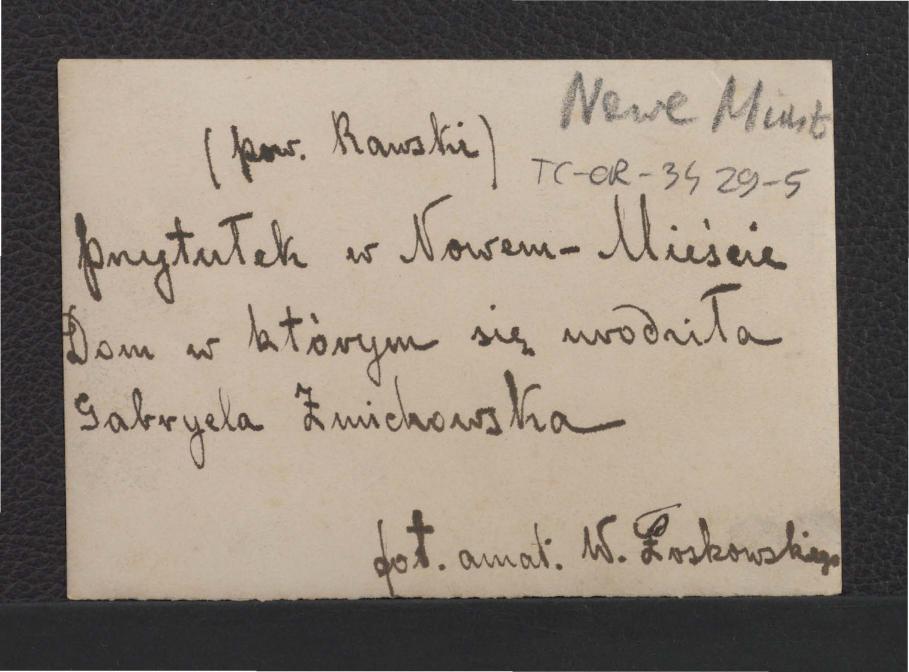 Nowe Miast
(pow. Rawski)
TC-OR-34 29-5
Przytułek w Nowem-Mieście
Dom w którym się urodziła
Gabryela Żmichowska
fot. amat. W. Łoskowskiego